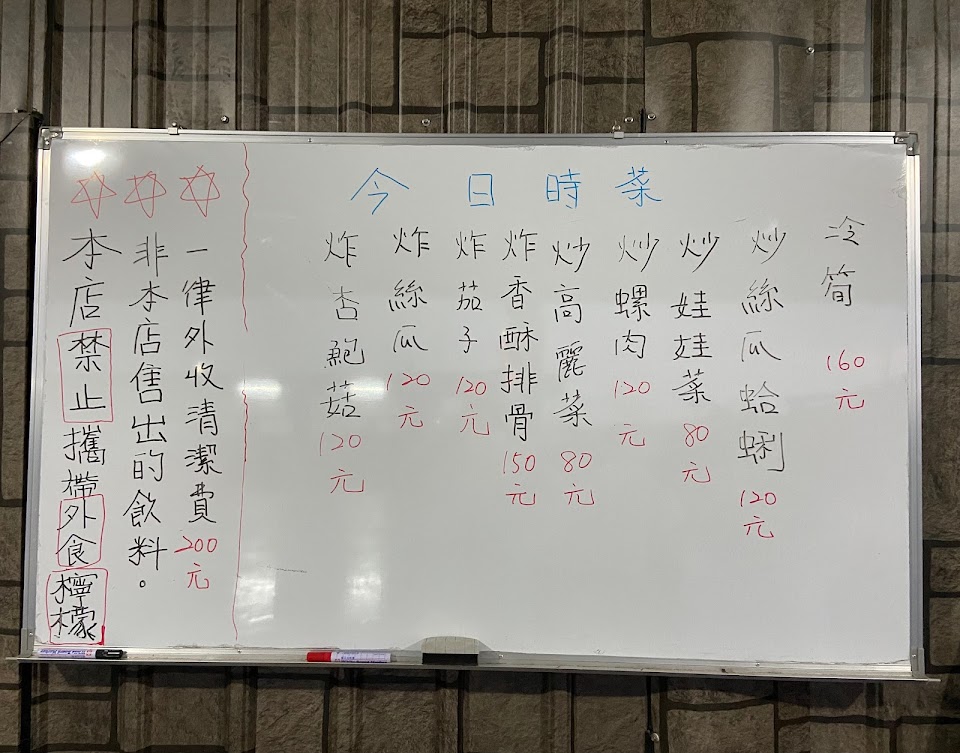 今日時菜
冷筍 160元
炒絲瓜蛤蜊 120元
炒娃娃菜 80元
炒螺肉 120元
炒高麗菜 80元
炸香酥排骨 150元
炸茄子 120元
炸絲瓜 120元
炸杏鮑菇 120元
一律外收清潔費200元
非本店售出的飲料。
本店禁止攜帶外食檸檬